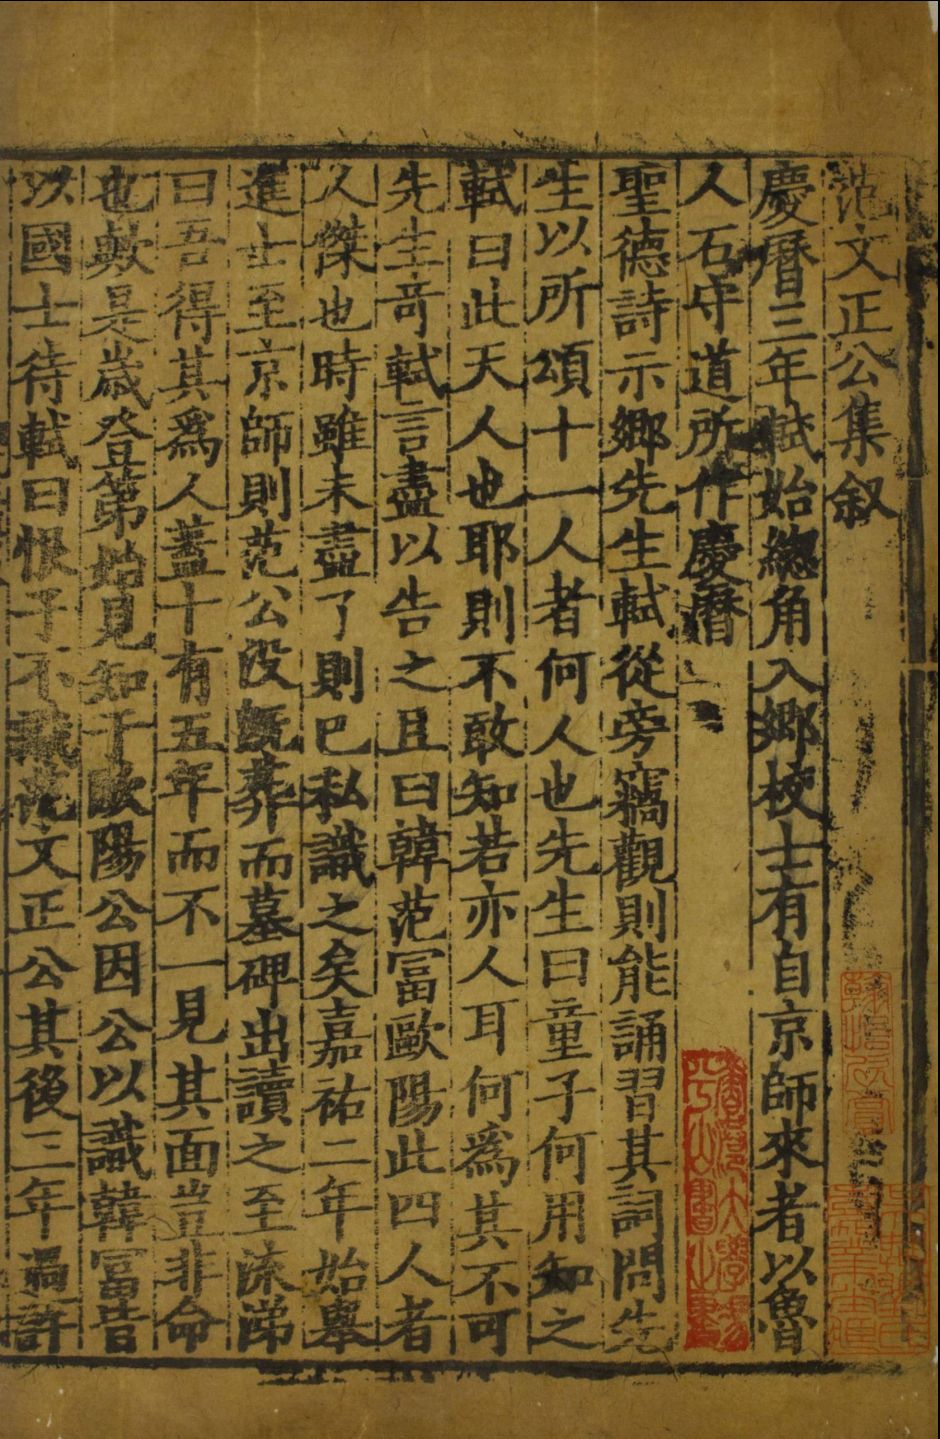 范文正公集叙
慶曆三年軾始總角入鄉校士有自京師來者以魯
人石守道所作慶曆
聖德詩示鄉先生軾從旁竊觀則能誦習其詞問先
生以所頌十一人者何人也先生曰童子何用知之
軾曰此天人也耶則不敢知若亦人耳何爲其不可
先生竒軾言盡以告之且曰韓范冨歐陽此四人者
人傑也時雖未盡了則已私識之矣嘉祐二年始舉
進士至京師則范公没旣葬而墓碑出讀之至流涕
曰吾得其爲人蓋十有五年而不一見其面豈非命
也歟是歲登第始見知于歐陽公因公以識韓冨皆
以國士待軾曰恨子不識范文正公其後三年過許